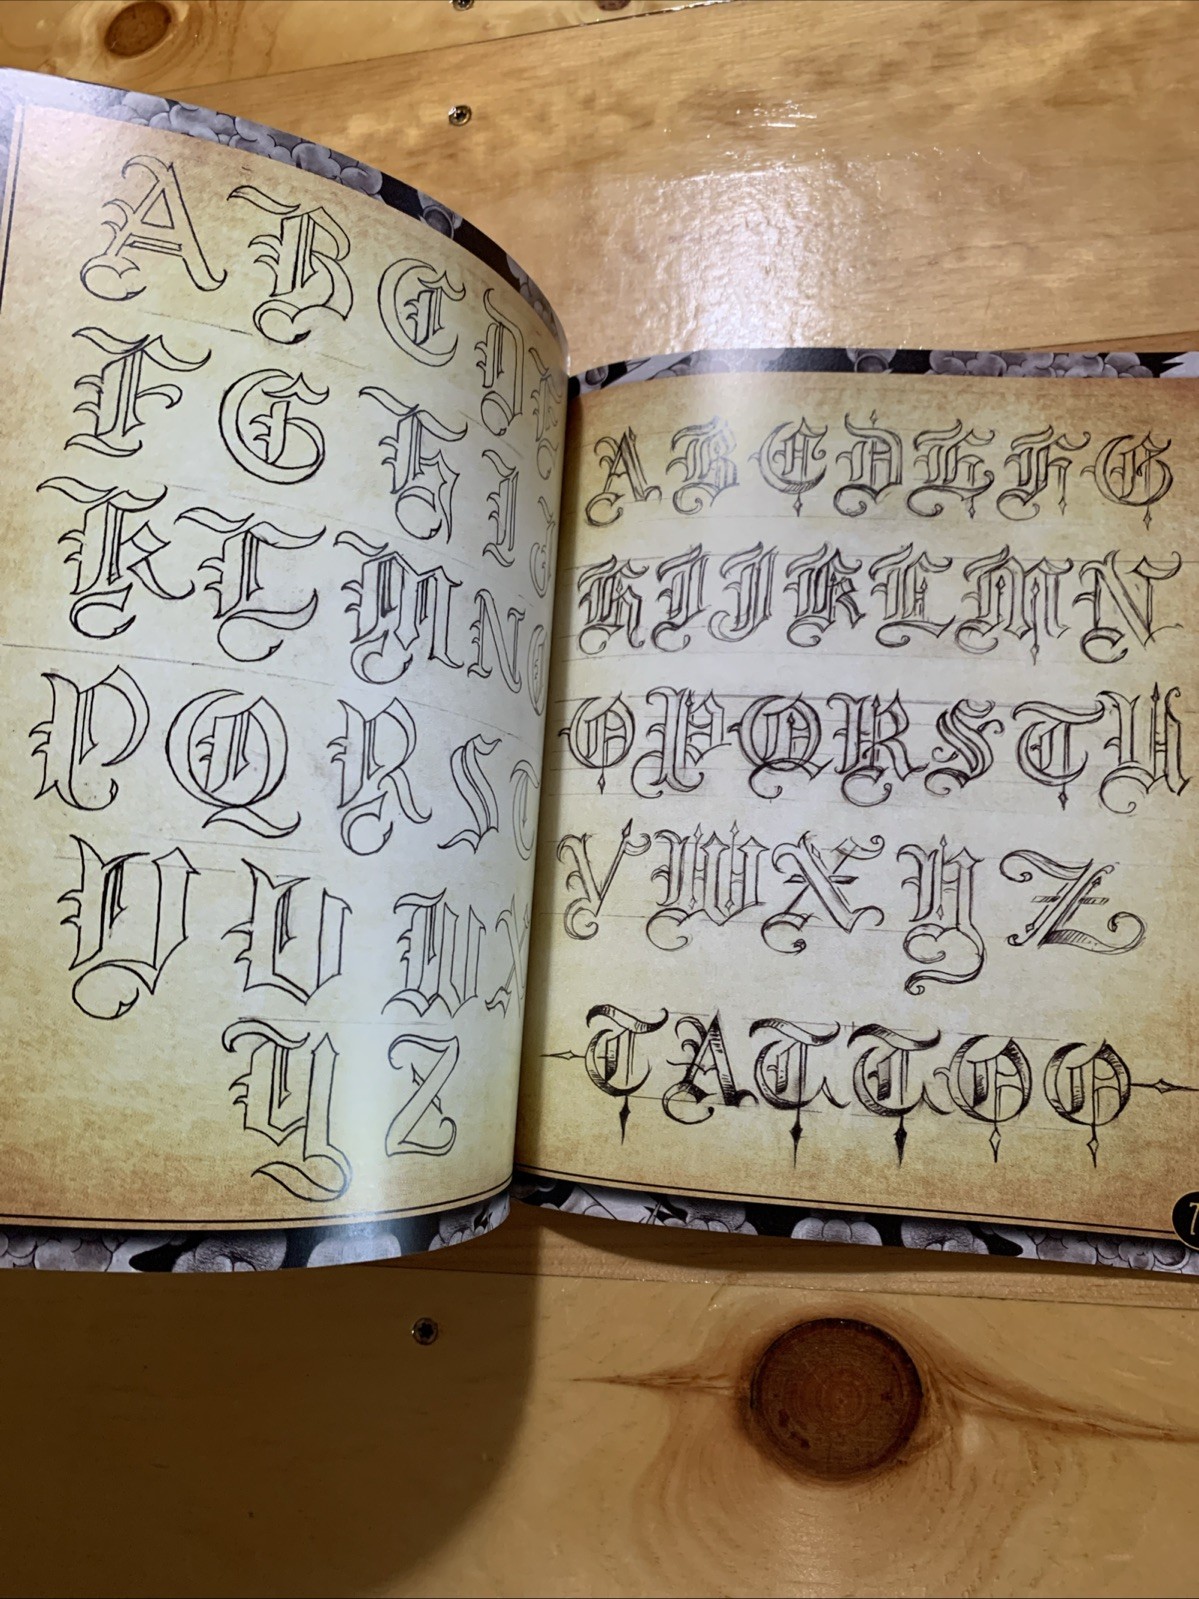 A B C D E
F G H I J
K L M N O
P Q R S T
U V W X
Y Z
A B C D E F G
H I J K L M N
O P Q R S T U
V W X Y Z
TATTOO
7